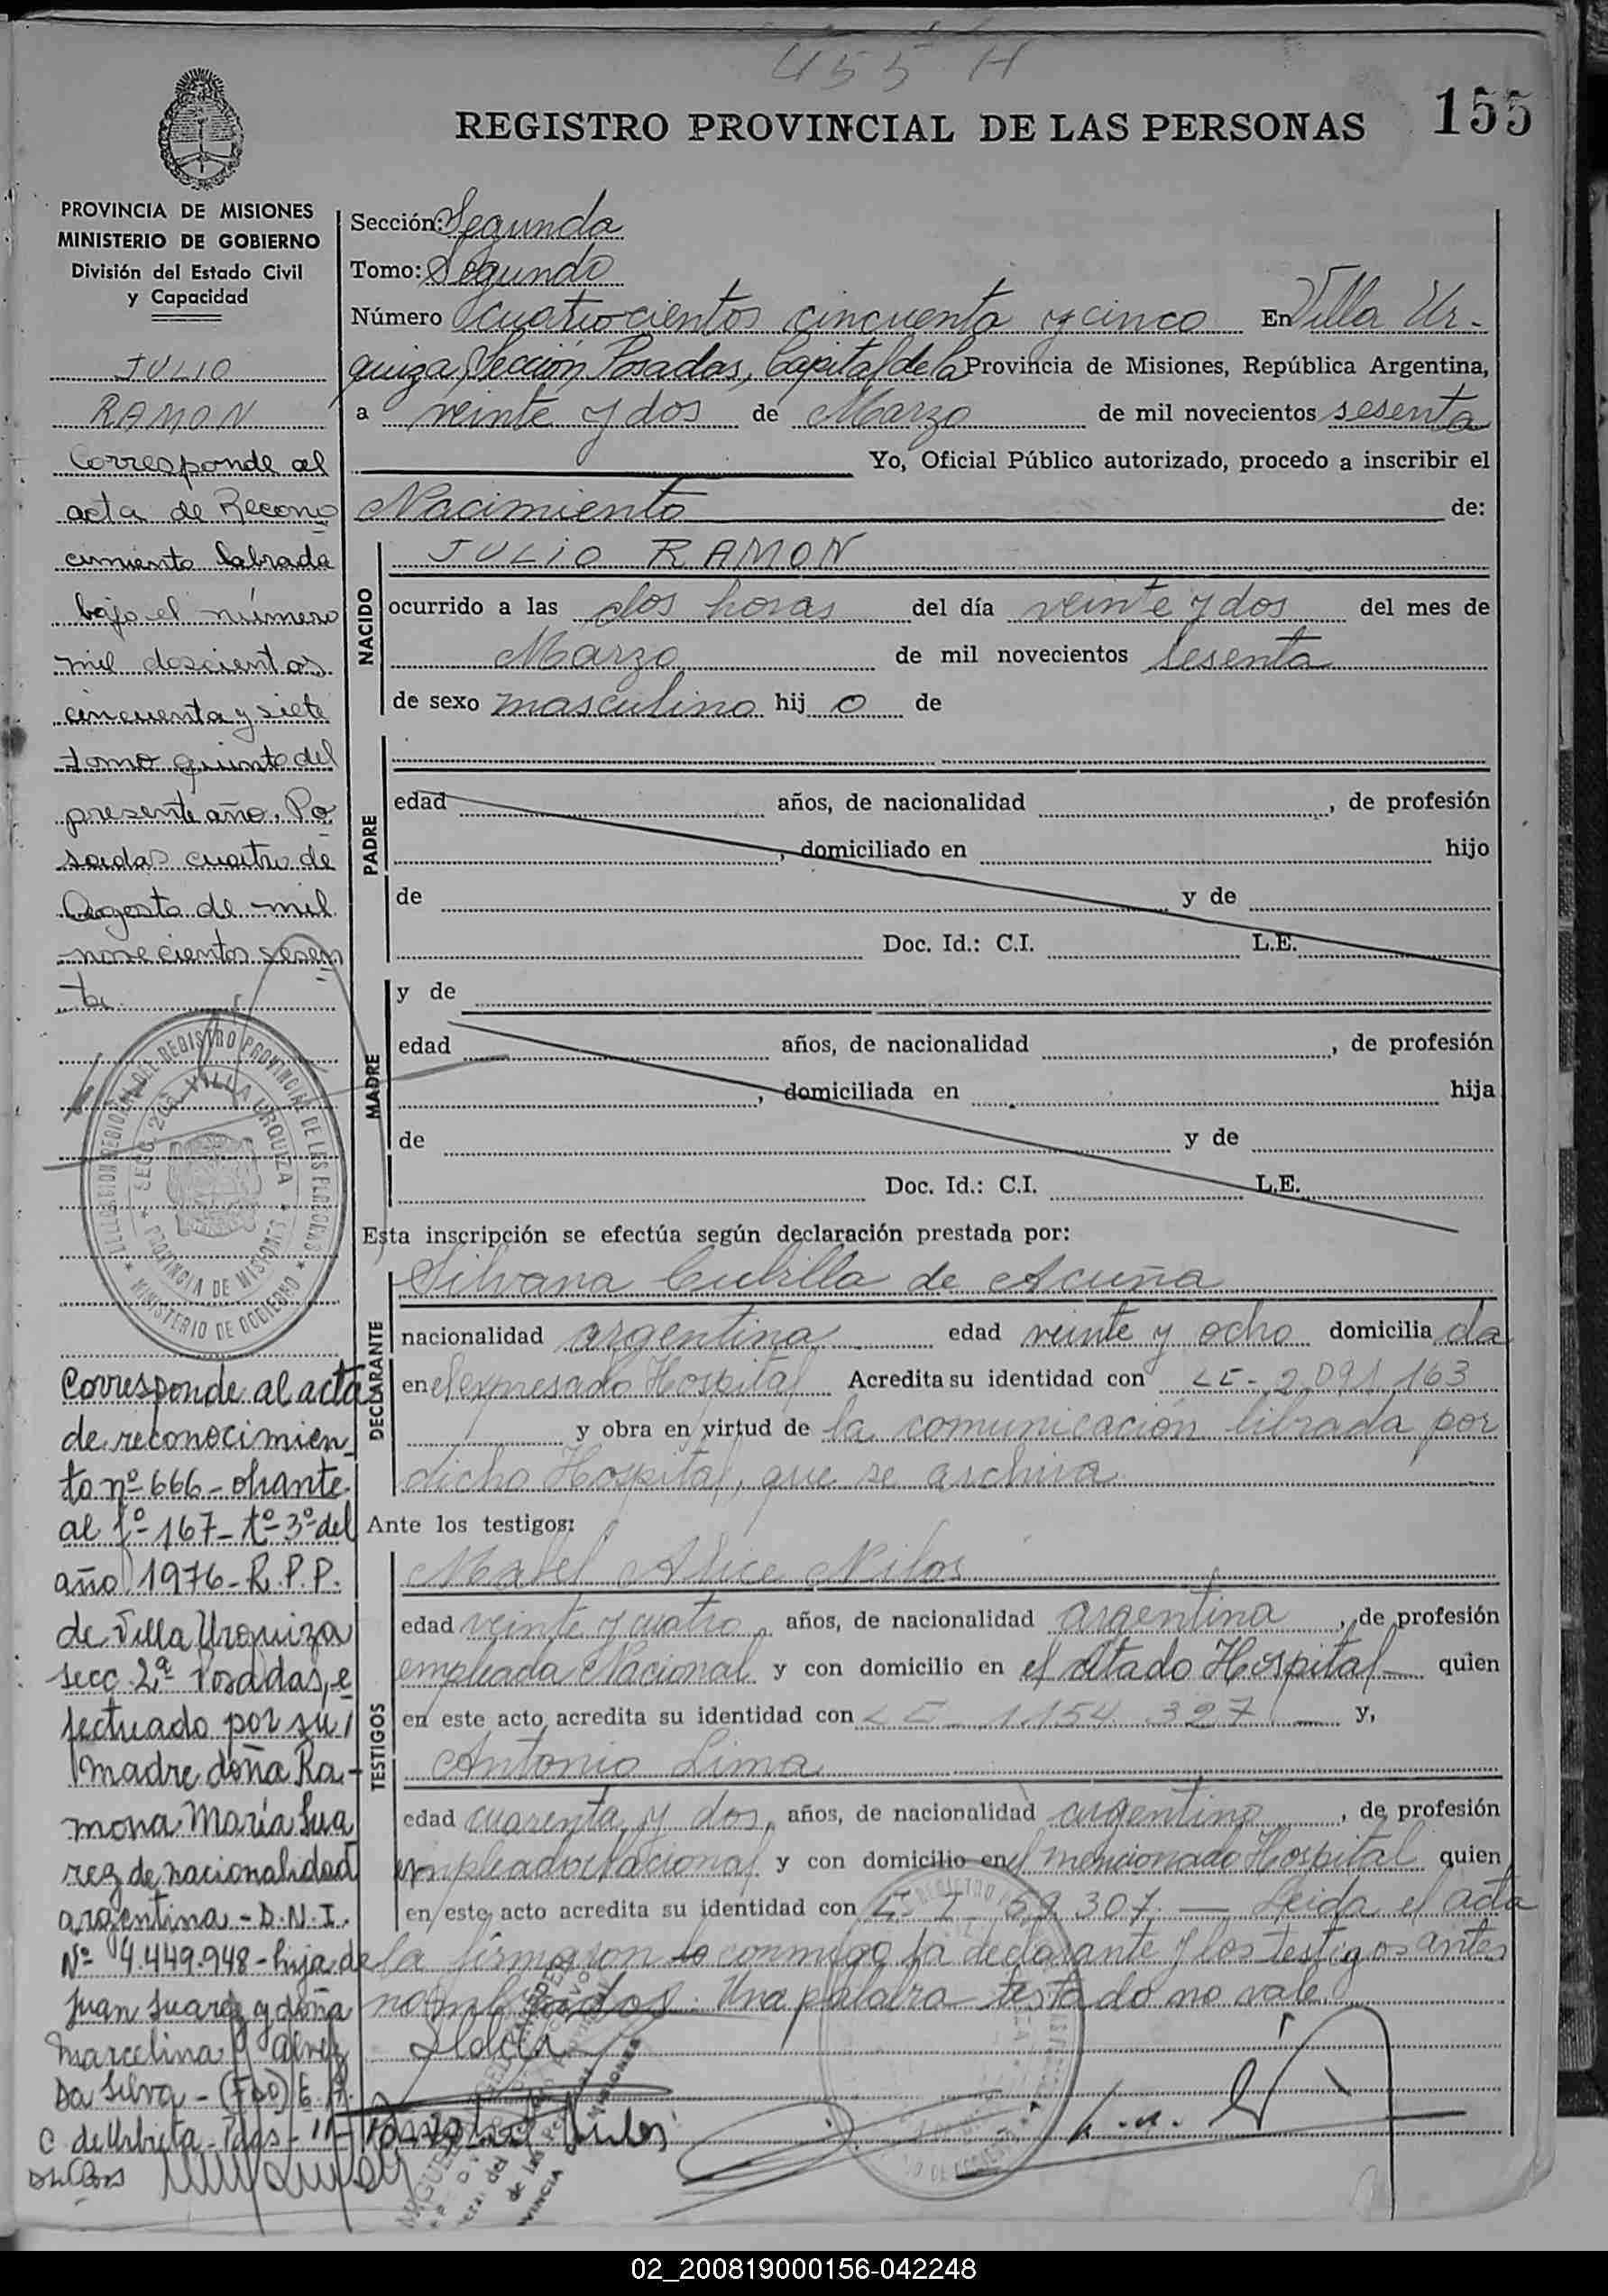 455 H
REGISTRO PROVINCIAL DE LAS PERSONAS 155
PROVINCIA DE MISIONES
MINISTERIO DE GOBIERNO
División del Estado Civil
y Capacidad
JULIO
RAMON
Corresponde al
acta de Recono
cimiento labrada
bajo el número
mil doscientos
cincuenta y siete
tomo quinto del
presente año. Po
sadas cuatro de
Agosto de mil
novecientos sesen
ta.
DELEGACION REGIONAL DEL REGISTRO PROVINCIAL DE LAS PERSONAS
SECC. 2da VILLA URQUIZA
PROVINCIA DE MISIONES
MINISTERIO DE GOBIERNO
Corresponde al acta
de reconocimien
to nº 666 - obrante
al fº 167 - tº 3º del
año 1976 - R.P.P.
de Villa Urquiza
secc. 2ª Posadas, e
fectuado por su
madre doña Ra-
mona María Sua
rez de nacionalidad
argentina - D.N.I.
Nº 4.449.948 - hija de
Juan Suarez y doña
Marcelina Alvez
Da Silva - (Fdo) E. A.
C de Urbieta - Pdas - 11 -
Sección: Segunda
Tomo: Segundo
Número cuatrocientos cincuenta y cinco En Villa Ur-
quiza, Sección Posadas, Capital de la Provincia de Misiones, República Argentina,
a veinte y dos de Marzo de mil novecientos sesenta
Yo, Oficial Público autorizado, procedo a inscribir el
Nacimiento de:
NACIDO
JULIO RAMON
ocurrido a las dos horas del día veinte y dos del mes de
Marzo de mil novecientos sesenta
de sexo masculino hij o de
PADRE
edad años, de nacionalidad , de profesión
, domiciliado en hijo
de y de
Doc. Id.: C.I. L.E.
MADRE
y de
edad años, de nacionalidad , de profesión
, domiciliada en hija
de y de
Doc. Id.: C.I. L.E.
Esta inscripción se efectúa según declaración prestada por:
DECLARANTE
Silvana Cubilla de Acuña
nacionalidad argentina edad veinte y ocho domicilia da
en el expresado Hospital Acredita su identidad con LC - 2.091.163
y obra en virtud de la comunicación librada por
dicho Hospital, que se archiva
Ante los testigos:
TESTIGOS
Mabel Alice Nilos
edad veinte y cuatro, años, de nacionalidad argentina , de profesión
empleada Nacional y con domicilio en el citado Hospital quien
en este acto acredita su identidad con LC - 1.154.327 y,
Antonio Lima
edad cuarenta y dos, años, de nacionalidad argentino , de profesión
empleado Nacional y con domicilio en el mencionado Hospital quien
en este acto acredita su identidad con 59.307. — Leida el acta
la firmaron lo conmigo la declarante y los testigos antes
nombrados. Una palabra testado no vale.
02_200819000156-042248